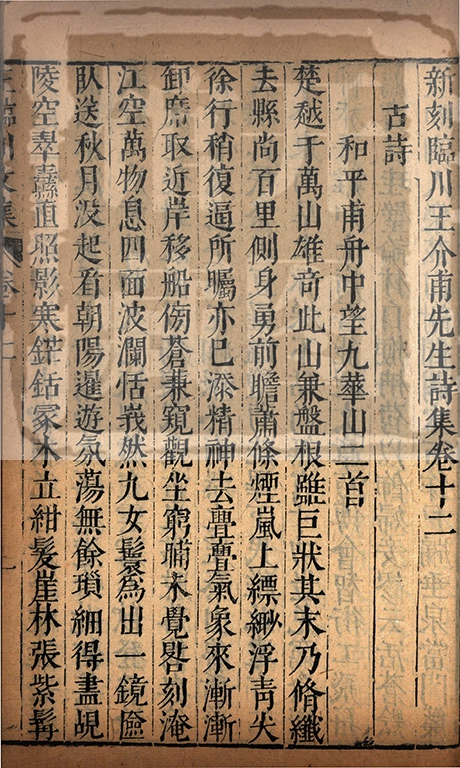 新刻臨川王介甫先生詩集卷十二
古詩
和平甫舟中望九華山二首
楚越千萬山雄奇此山兼盤根雖巨壯其末乃脩纖
去縣尚百里側身勇前瞻蕭條煙嵐上縹緲浮青尖
徐行稍復逼所矚亦已添精神去亹亹氣象來漸漸
卸席取近岸移船傍蒼蒹窺觀坐窮晡未覺晷刻淹
江空萬物息四面波瀾恬峩然九女鬟爲出一鏡匳
臥送秋月沒起看朝陽暹遊氛蕩無餘瑣細得盡覘
陵空翠纛直照影寒鋩銛冢木立紺髮崖林張紫髯
王臨川文集 卷十二 一